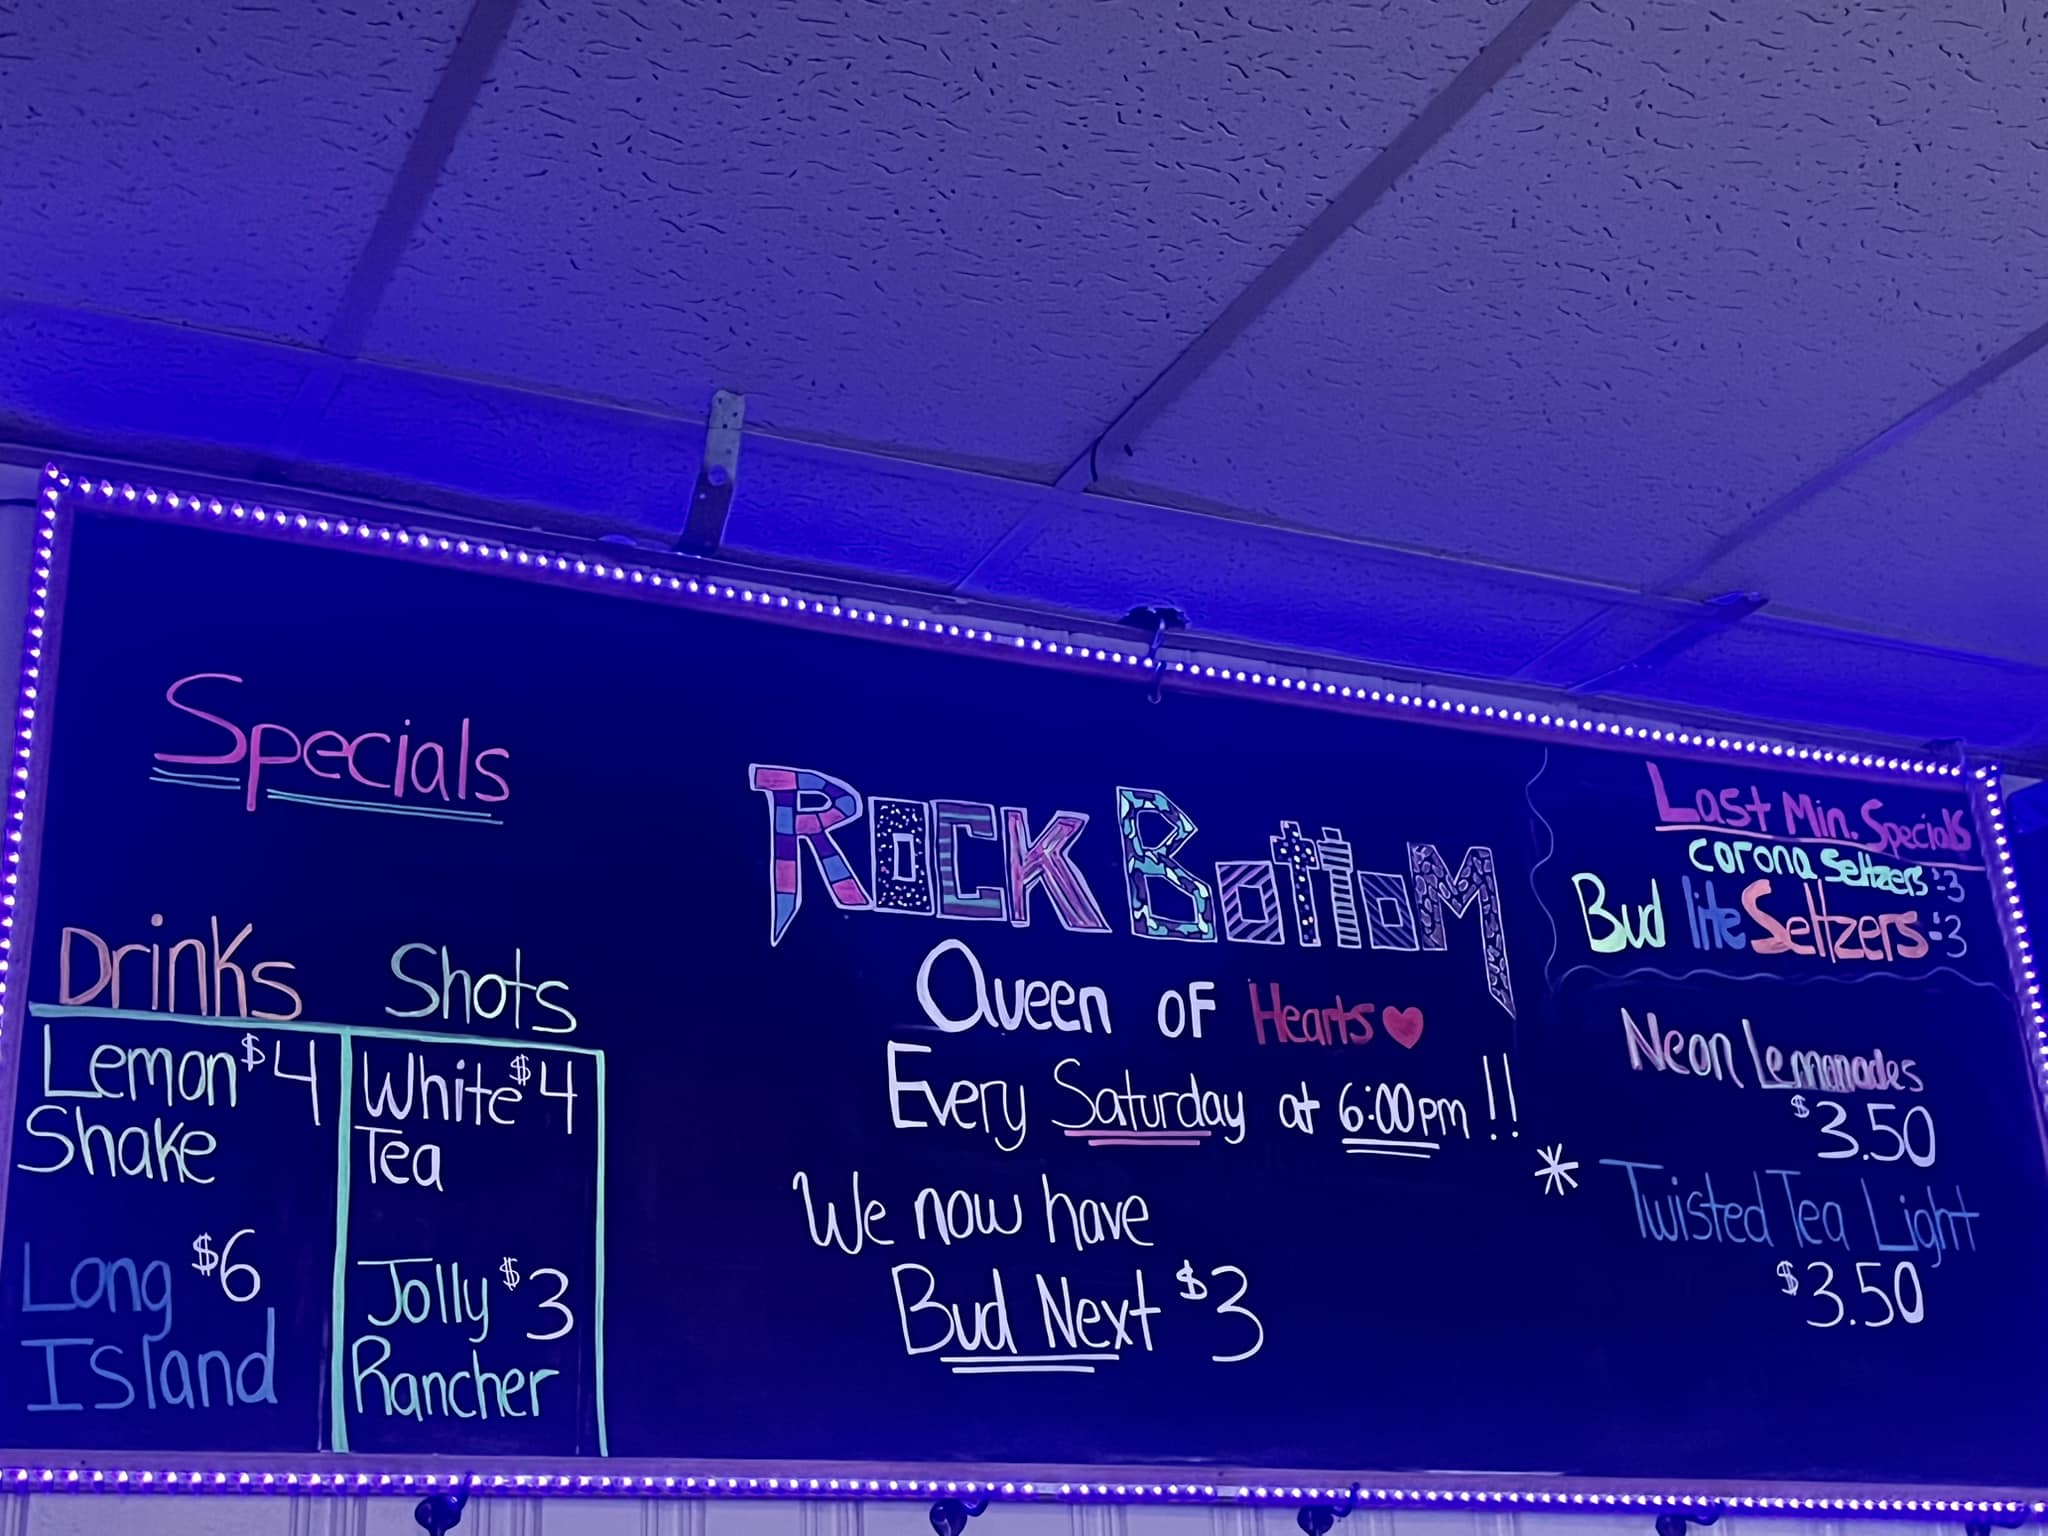 Specials
Drinks
Lemon $4
Shake
Long $6
Island
Shots
White $4
Tea
Jolly $3
Rancher
Rock Bottom
Queen of Hearts
Every Saturday at 6:00pm!!
We now have
Bud Next $3
Last Min. Specials
Corona Seltzers $3
Bud lite Seltzers $3
Neon Lemonades
$3.50
* Twisted Tea Light
$3.50